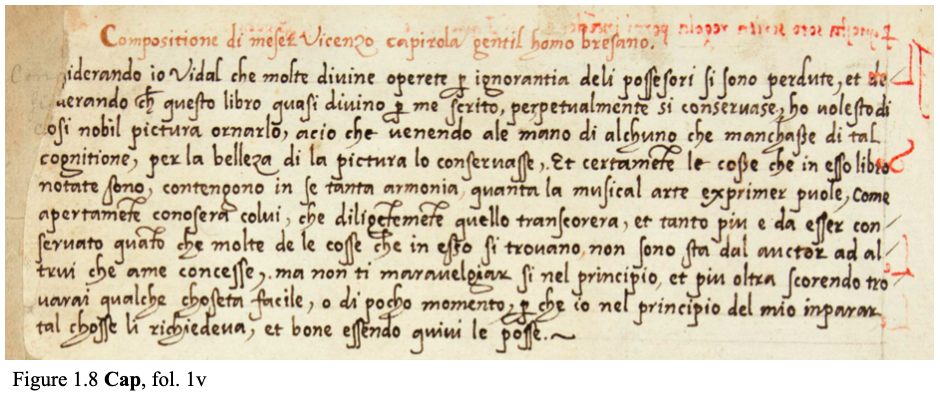 Compositione di meser Vicenzo capirola gentil homo bresano.
Considerando io Vidal che molte divine operete ꝑ ignorantia deli possesori si sono perdute, et de
siderando ch̃ questo libro quasi divino ꝑ me scrito, perpetualmente si conservase, ho volesto di
cosi nobil pictura ornarlo, acio che venendo ale mano di alchuno che manchaße di tal
cognitione, per la belleza di la pictura lo conservasse, Et certamẽte le coße che in esso libro
notate sono, contengono in se tanta armonia, quanta la musical arte exprimer puole, Come
apertamẽte conosera colui, che diligẽtemẽte quello transcorera, et tanto piu e da esser con
servato quãto che molte de le cosse ch̃ in esso si trovano, non sono sta dal auctor ad al
trui che ame concesse, ma non ti maravelgiar si nel principio, et piu oltra scorendo tro
varai qualche choseta facile, o di pocho momento, ꝑ che io nel principio del mio inparar
tal chosse li richiedeva, et bone essendo quivi le posse.~
Figure 1.8 Cap, fol. 1v